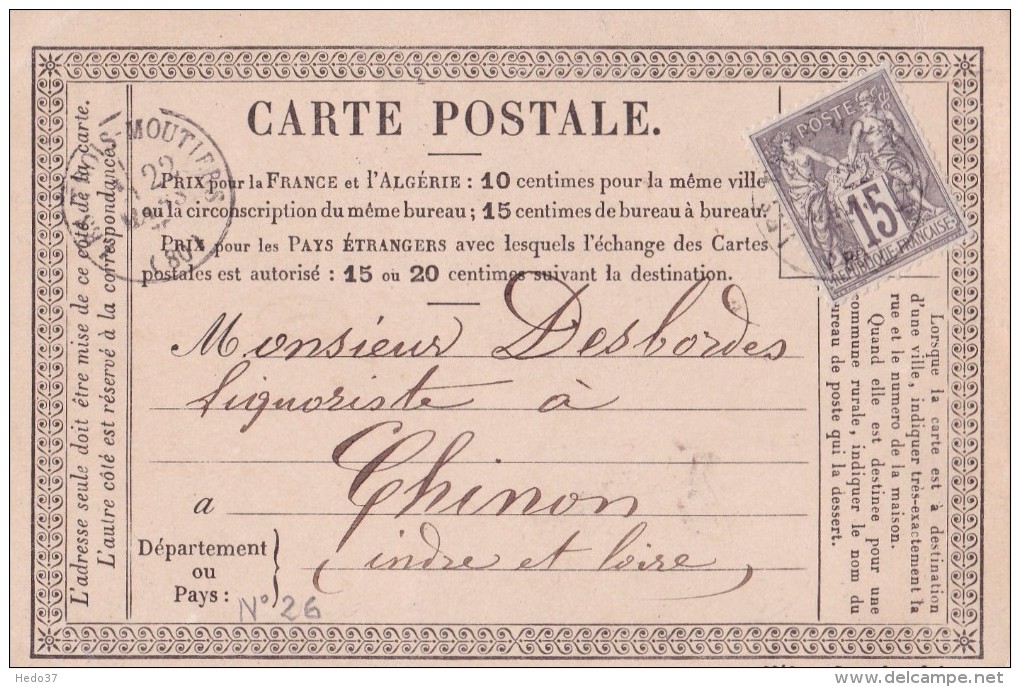 CARTE POSTALE.
PRIX pour la FRANCE et l'ALGÉRIE : 10 centimes pour la même ville
ou la circonscription du même bureau ; 15 centimes de bureau à bureau.
PRIX pour les PAYS ÉTRANGERS avec lesquels l'échange des Cartes
postales est autorisé : 15 ou 20 centimes suivant la destination.
MOUTIERS
22
MARS
(80)
POSTE
15
REPUBLIQUE FRANÇAISE
L'adresse seule doit être mise de ce côté de la carte.
L'autre côté est réservé à la correspondance.
Monsieur Desbordes
liquoriste à
a Chinon
Département
ou
Pays :
indre et loire
N° 26
Lorsque la carte est à destination
d'une ville, indiquer très-exactement la
rue et le numero de la maison.
Quand elle est destinée pour une
commune rurale, indiquer le nom du
bureau de poste qui la dessert.
Hedo37
delcampe.net